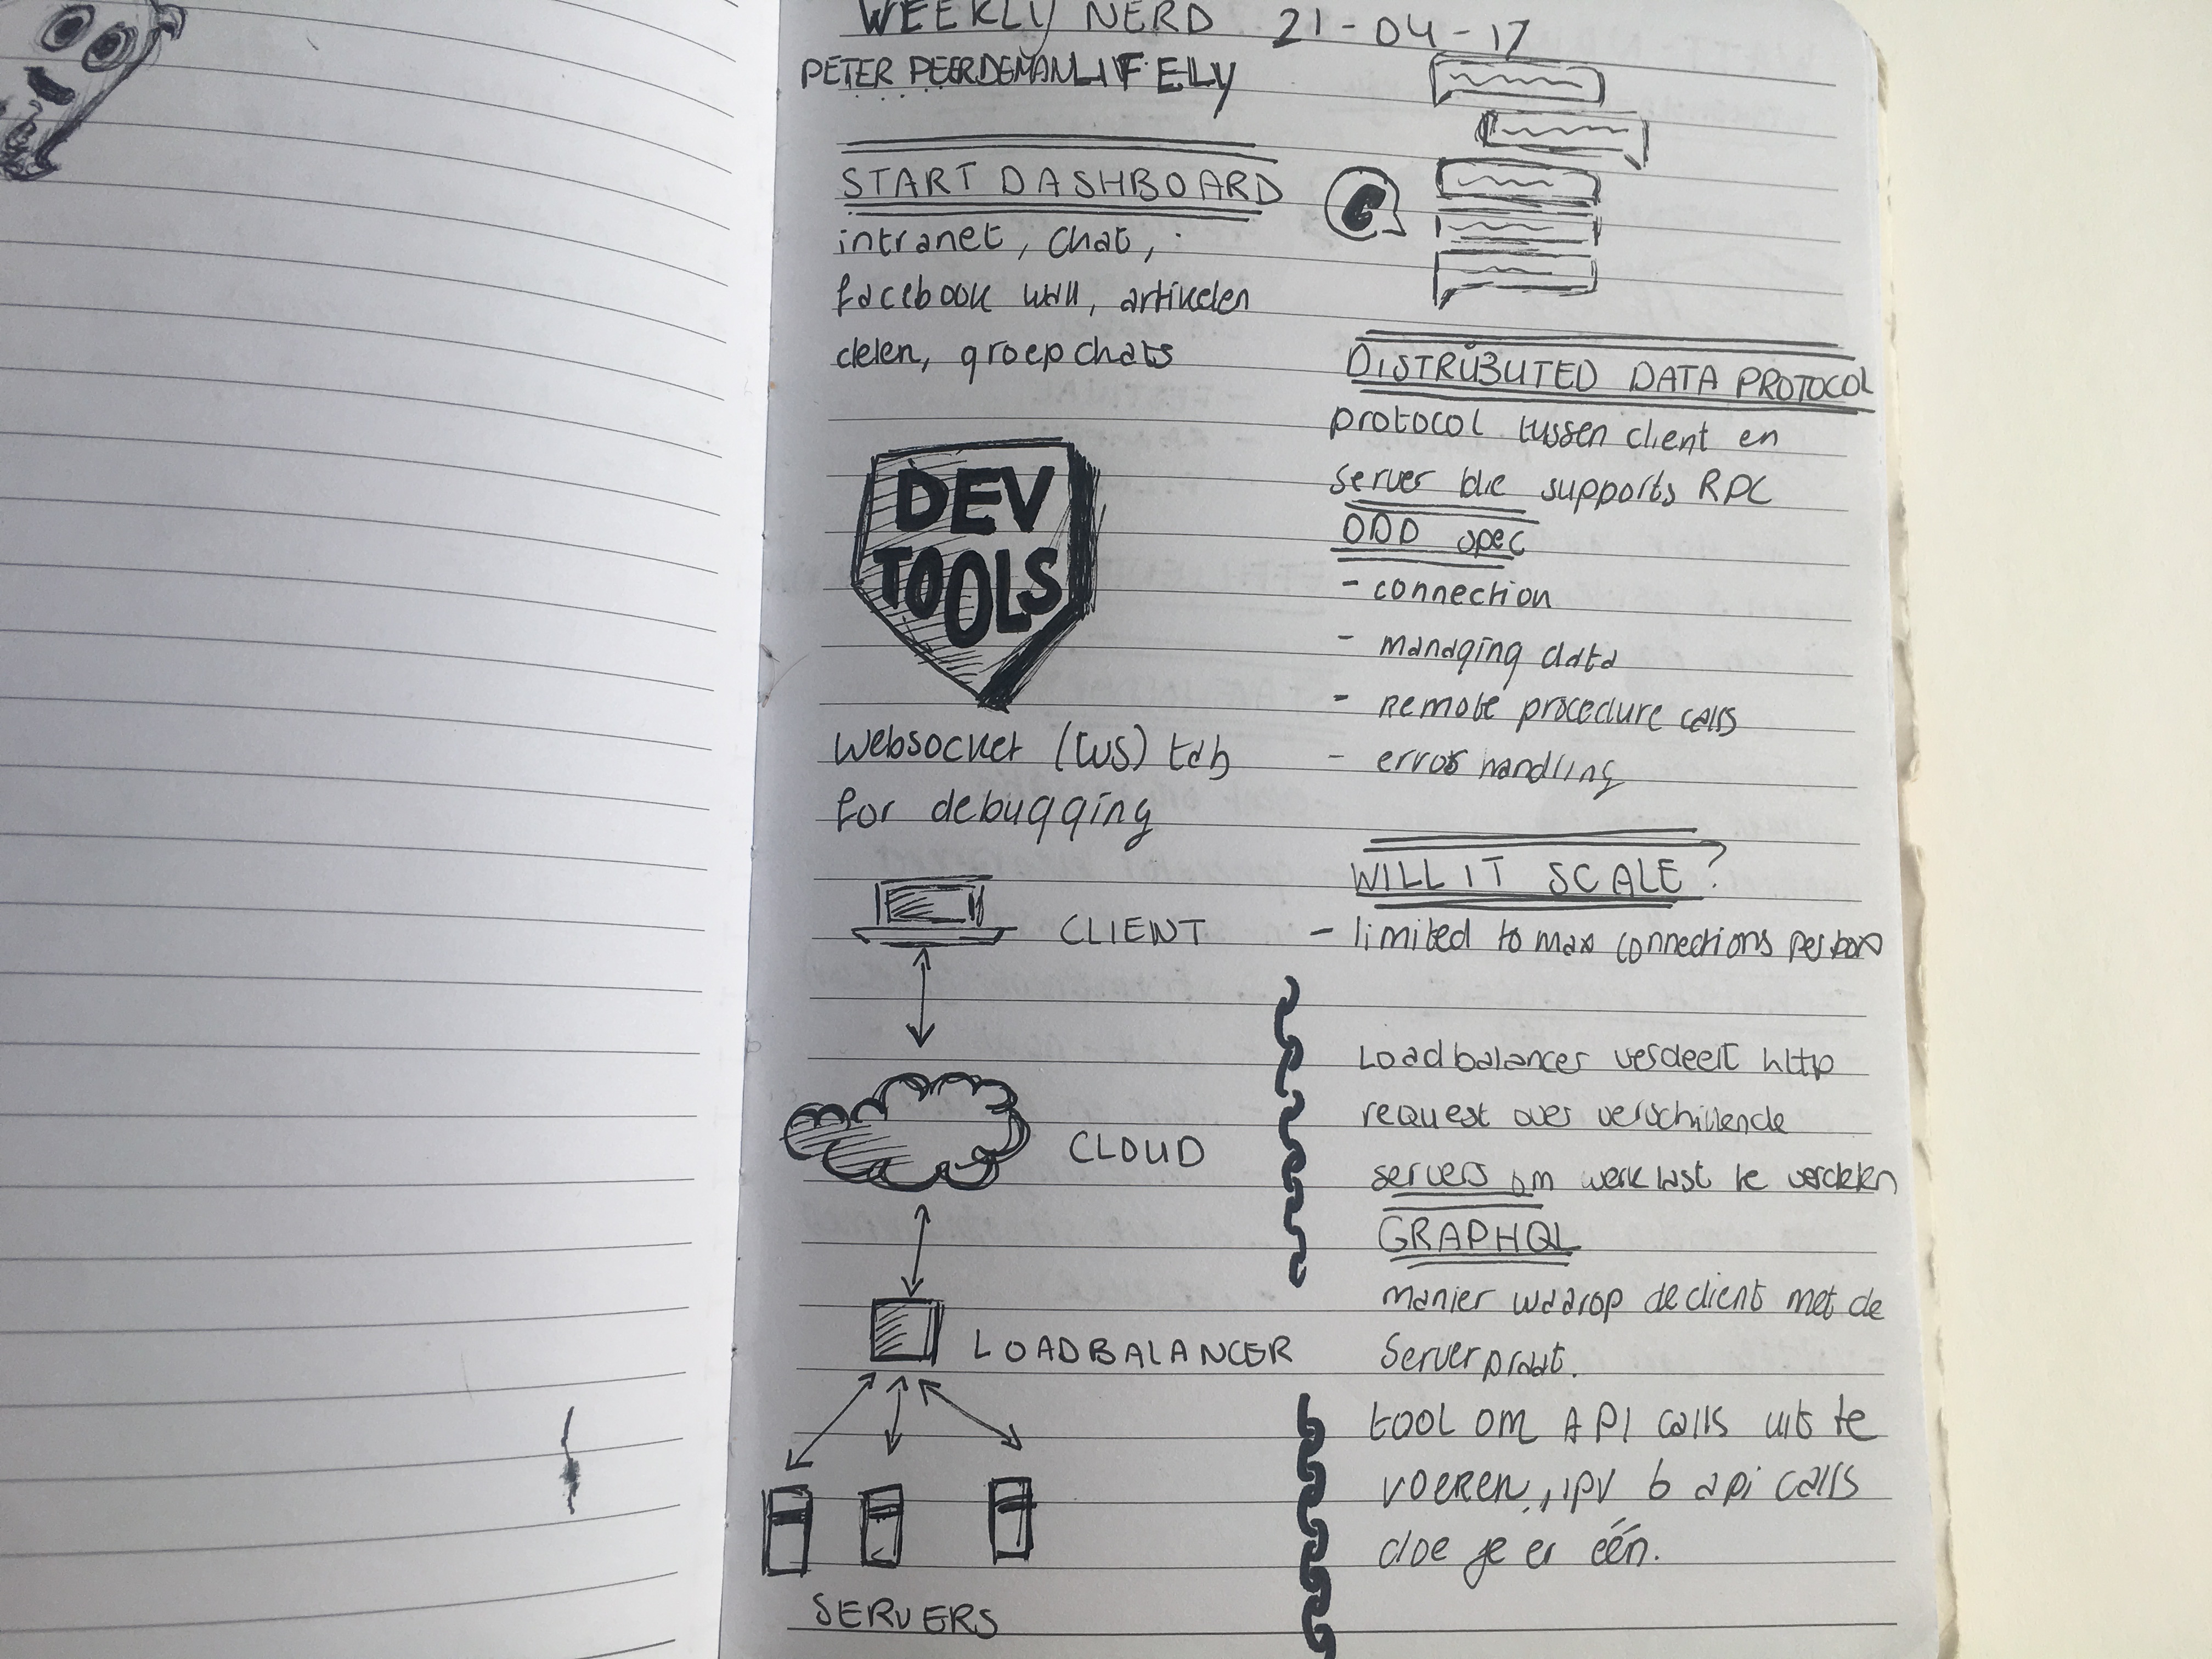 WEEKLY NERD 21-04-17
PETER PEERDEMAN LIFELY
START DASHBOARD
intranet, chat,
facebook wall, artikelen
delen, groepchats
DEV
TOOLS
Websocket (WS) tab
for debugging
CLIENT
CLOUD
LOADBALANCER
SERVERS
DISTRIBUTED DATA PROTOCOL
protocol tussen client en
server die supports RPC
DDD spec
- connection
- managing data
- Remote procedure calls
- error handling
WILL IT SCALE?
- limited to max connections per box
Loadbalancer verdeelt http
request over verschillende
servers om werklast te verdelen
GRAPHQL
manier waarop de client met de
Server praat.
tool om API calls uit te
voeren, ipv 6 api calls
doe je er één.